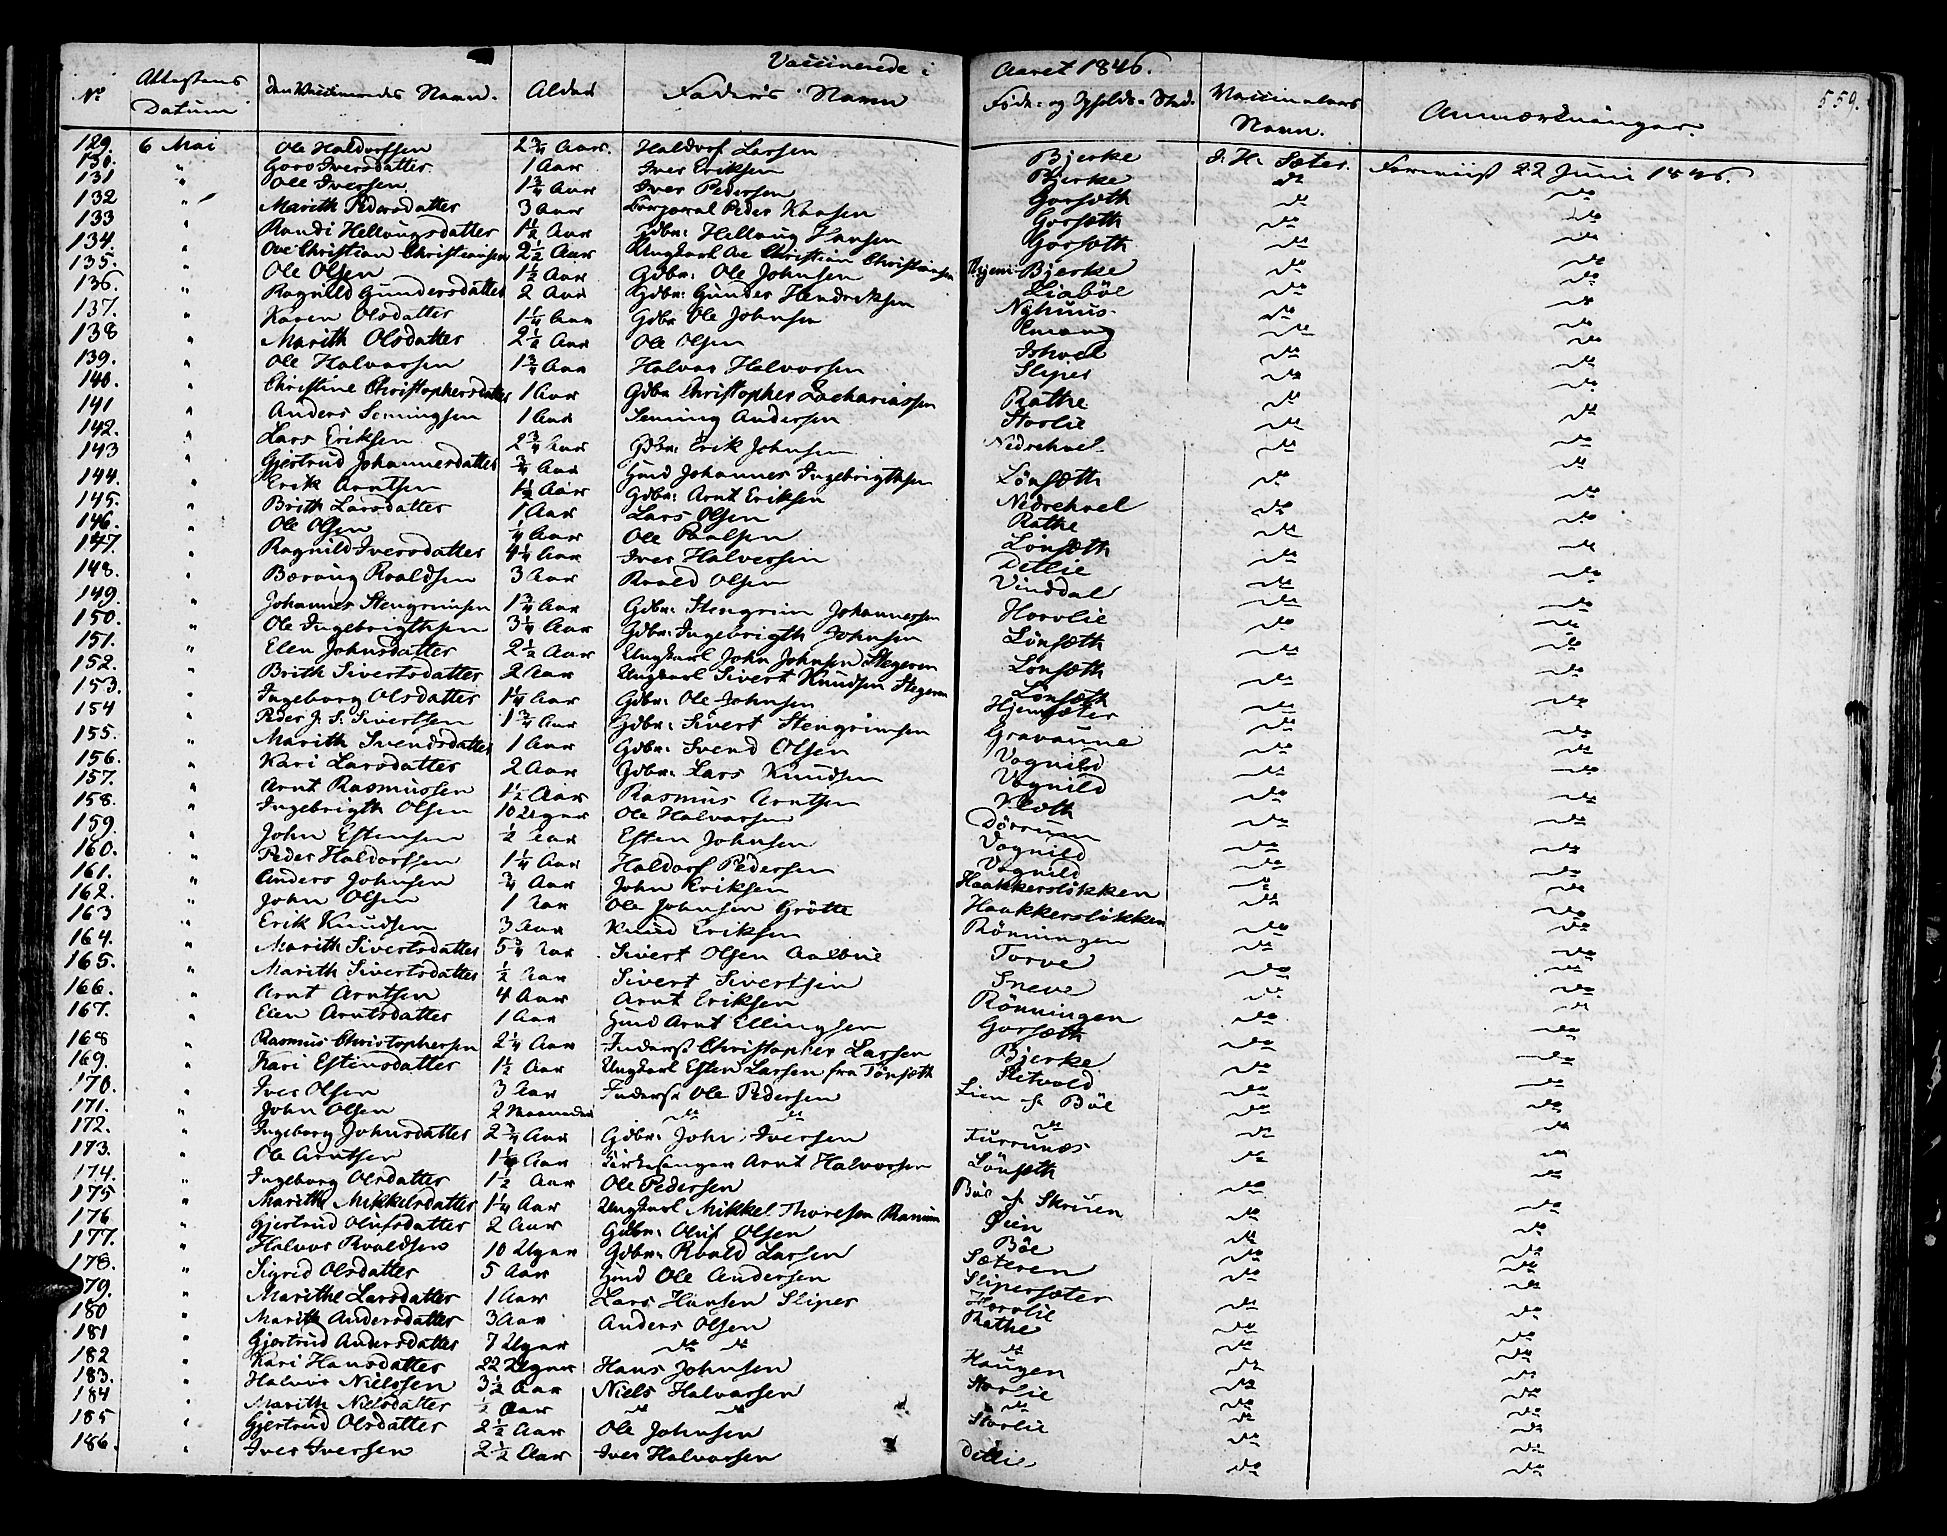 Vaccinerede i Aaret 1846.
559.
No Attestens Datum Den Vaccineredes Navn. Alder Faderes Navn Føde- og Opholds-Sted. Vaccinateurs Navn. Anmærkninger.
129. 6 Mai Ole Haldorssen 2 3/4 Aar. Haldors Larsen Bjerke J. H. Sæter. Foreviist 22 Juni 1846.
130. " Goro Iversdatter 1 Aar Iver Eriksen Bjerke do do
131 " Ole Iversen 1 3/4 Aar Iver Pedersen Gorsæth do do
132 " Marith Pedersdatter 3 Aar Corporal Peder Kaasen Gorsæth do do
133 " Randi Hellaugsdatter 1 1/2 Aar Gdbr: Hellaug Hansen Gorsæth do do
134. " Ove Christian Christiansen 2 1/2 Aar Ungkarl Ove Christian Christiansen Bjerke do do
135. " Ole Olsen 1 1/2 Aar Gdbr: Ole Johnsen Liabøe do do
136. " Ragnild Gundersdatter 2 Aar Gdbr: Gunder Hendriksen Nyhuus do do
137. " Karen Olsdatter 1 1/4 Aar Gdbr Ole Johnsen do do
138 " Marith Olsdatter 2 1/2 Aar Ole Olsen Ishoel do do
139. " Ole Halvorsen 1 3/4 Aar Halvor Halvorsen Sliper do do
140. " Christine Christophersdatter 1 Aar Gdbr Christopher Zachariassen Rathe do do
141 " Anders Semingsen 1 Aar Seming Andersen Storlie do do
142. " Lars Eriksen 2 3/4 Aar Gdbr: Erik Johnsen Nedrehoel do do
143 " Gjertrud Johannesdatter 3/4 Aar Huusmd Johannes Ingebrigthsen Lønsæth do do
144. " Erik Arntsen 1 1/2 Aar Gdbr: Arnt Eriksen Nedrehoel do do
145. " Brith Larsdatter 1 Aar Lars Olsen Rathe do do
146. " Ole Olsen 1/4 Aar Ole Paalsen Lønsæth do do
147. " Ragnild Iversdatter 4 1/4 Aar Iver Halvorsen Detlie do do
148. " Baraug Roaldsen 3 Aar Roald Olsen Vinddal do do
149. " Johannes Stengrimsen 1 3/4 Aar Gdbr: Stengrim Johannessen Horvlie do do
150. " Ole Ingebrigthsen 3 1/4 Aar Gdbr: Ingebrigth Johnsen Lønsæth do do
151. " Elen Johnsdatter 2 1/2 Aar Ungkarl John Johnsen Stegeren Lønsæth do do
152. " Brith Sivertsdatter 2 Aar Ungkarl Sivert Knudsen Stegeren Lønsæth do do
153. " Ingeborg Olsdatter 1 1/4 Aar Gdbr: Ole Johnsen Hjemsæter do do
154 " Peder J. S. Sivertsen 1 3/4 Aar Gdbr: Sivert Stengrimsen Gravaune do do
155. " Marith Svendsdatter 1 Aar Gdbr: Svend Olsen Vognild do do
156. " Kari Larsdatter 2 Aar Gdbr: Lars Knudsen Vognild do do
157. " Arnt Rasmussen 1 1/2 Aar Rasmus Arntsen Kleth do do
158. " Ingebrigth Olsen 10 Uger Ole Halvorsen Dørrum do do
159. " John Estensen 1/2 Aar Esten Johnsen Vognild do do
160. " Peder Haldorsen 1 1/4 Aar Haldors Pedersen Vognild do do
161. " Anders Johnsen 3/4 Aar John Eriksen Haakkersløkken do do
162. " John Olsen 1 Aar Ole Johnsen Grötte Haakkersløkken do do
163 " Erik Knudsen 3 Aar Knud Eriksen Rønningen do do
164. " Marith Sivertsdatter 5 3/4 Aar Sivert Olsen Aalbue Torve do do
165. " Marith Sivertsdatter 1/2 Aar Sivert Sivertsen Sneve do do
166. " Arnt Arntsen 4 Aar Arnt Eriksen Rønningen do do
167. " Elen Arntsdatter 1 Aar Huusmd Arnt Ellingsen Gorsæth do do
168 " Rasmus Christophersen 2 1/4 Aar Inderst Christopher Larsen Bjerke do do
169. " Kari Estensdatter 1 1/2 Aar Ungkarl Esten Larsen fra Tønsæth Sletvold do do
170. " Iver Olsen 3 Aar Inderst Ole Pedersen Lien af Böe do do
171. " John Olsen 2 Maaneder do do do do do
172. " Ingeborg Johnsdatter 2 3/4 Aar Gdbr: John Iversen Furrunæs do do
173. " Ole Arntsen 1 1/4 Aar Kirkesanger Arnt Halvorsen Lønsæth do do
174. " Ingeborg Olsdatter 1 1/2 Aar Ole Pedersen Böe af Skruen do do
175 " Marith Mikkelsdatter 1 1/4 Aar Ungkarl Mikkel Thoresen Ramum Øien do do
176 " Gjertrud Olufsdatter 2 Aar Gdbr: Oluf Olsen Böe do do
177. " Halvor Roaldsen 10 Uger Gdbr: Roald Larsen Sæteren do do
178. " Sigrid Olsdatter 5 Aar Huusmd Ole Andersen Slipersæter do do
179. " Marithe Larsdatter 1 Aar Lars Hansen Sliper Horvlie do do
180 " Marith Andersdatter 3 Aar Anders Olsen Rathe do do
181 " Gjertrud Andersdatter 7 Uger do do do do do
182 " Kari Hansdatter 22 Uger Hans Johnsen Haugen do do
183. " Halvor Nielssen 3 1/2 Aar Niels Halvorsen Storlie do do
184 " Marith Nielsdatter 1/2 Aar do do do do do
185 " Gjertrud Olsdatter 2 1/2 Aar Ole Johnsen Storlie do do
186. " Iver Iversen 2 1/2 Aar Iver Halvorsen Detlie do do